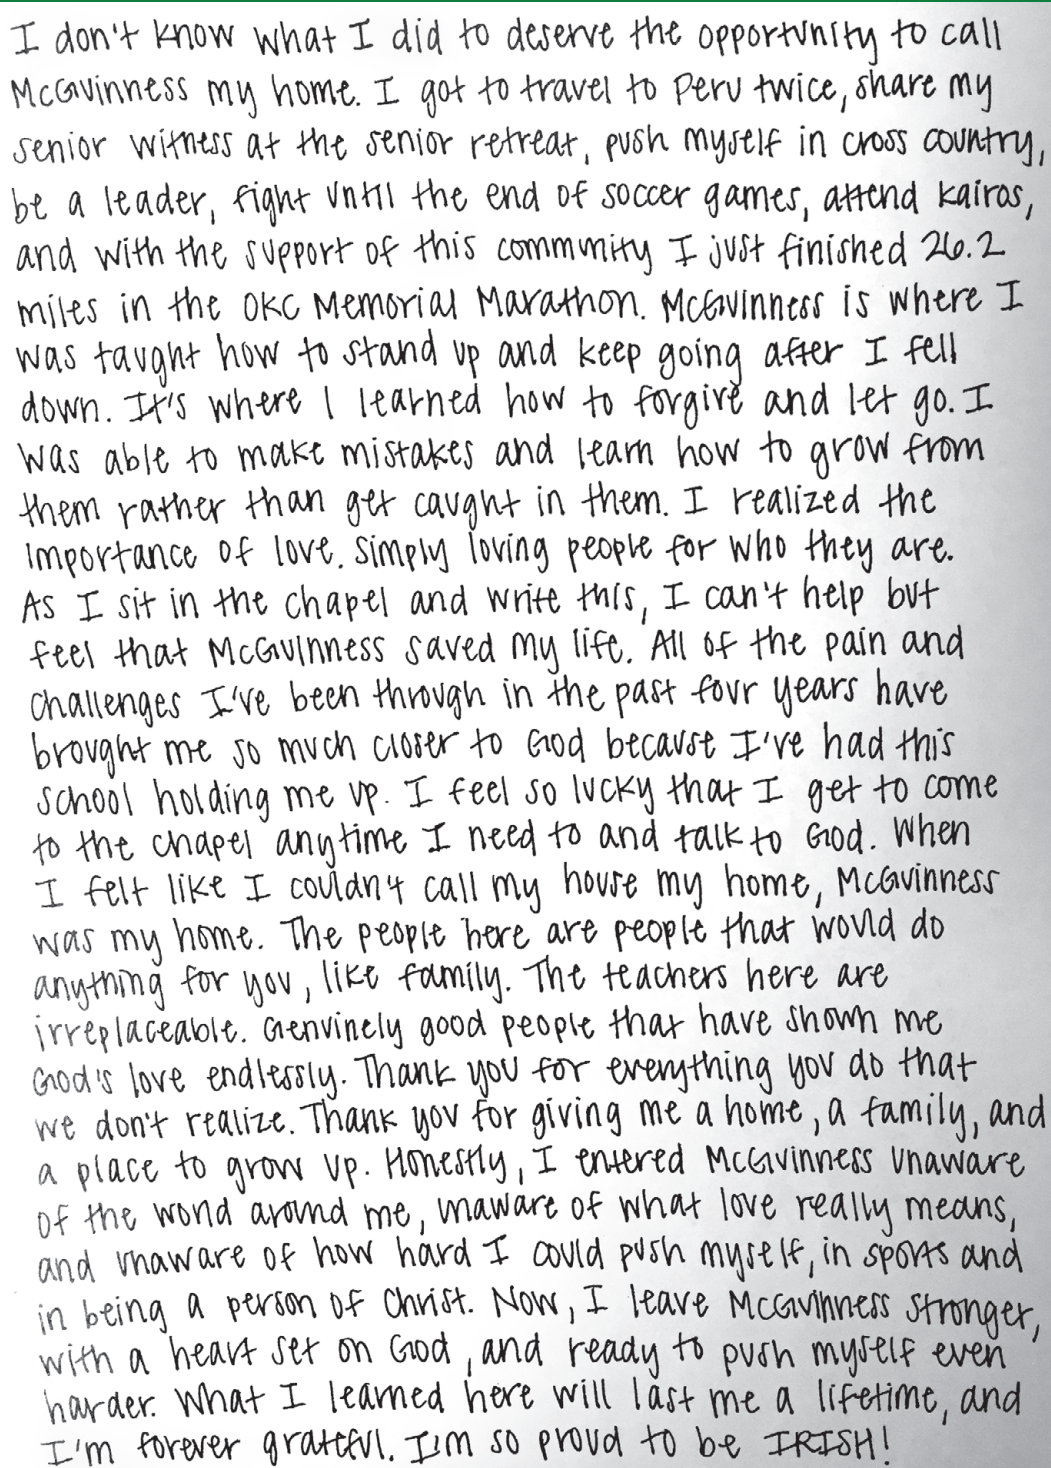 I don't know what I did to deserve the opportunity to call
McGuinness my home. I got to travel to Peru twice, share my
senior witness at the senior retreat, push myself in cross country,
be a leader, fight until the end of soccer games, attend Kairos,
and with the support of this community I just finished 26.2
miles in the OKC Memorial Marathon. McGuinness is where I
was taught how to stand up and keep going after I fell
down. It's where I learned how to forgive and let go. I
was able to make mistakes and learn how to grow from
them rather than get caught in them. I realized the
importance of love. Simply loving people for who they are.
As I sit in the chapel and write this, I can't help but
feel that McGuinness saved my life. All of the pain and
challenges I've been through in the past four years have
brought me so much closer to God because I've had this
school holding me up. I feel so lucky that I get to come
to the chapel anytime I need to and talk to God. When
I felt like I couldn't call my house my home, McGuinness
was my home. The people here are people that would do
anything for you, like family. The teachers here are
irreplaceable. Genuinely good people that have shown me
God's love endlessly. Thank you for everything you do that
we don't realize. Thank you for giving me a home, a family, and
a place to grow up. Honestly, I entered McGuinness unaware
of the world around me, unaware of what love really means,
and unaware of how hard I could push myself, in sports and
in being a person of Christ. Now, I leave McGuinness stronger,
with a heart set on God, and ready to push myself even
harder. What I learned here will last me a lifetime, and
I'm forever grateful. I'm so proud to be IRISH!